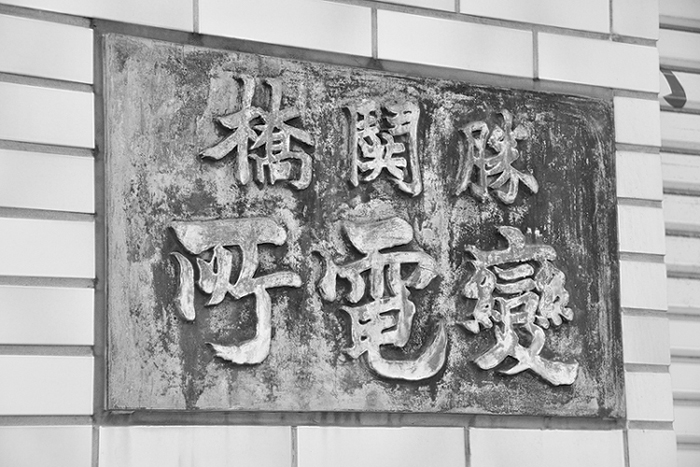 勝鬨橋
變電所